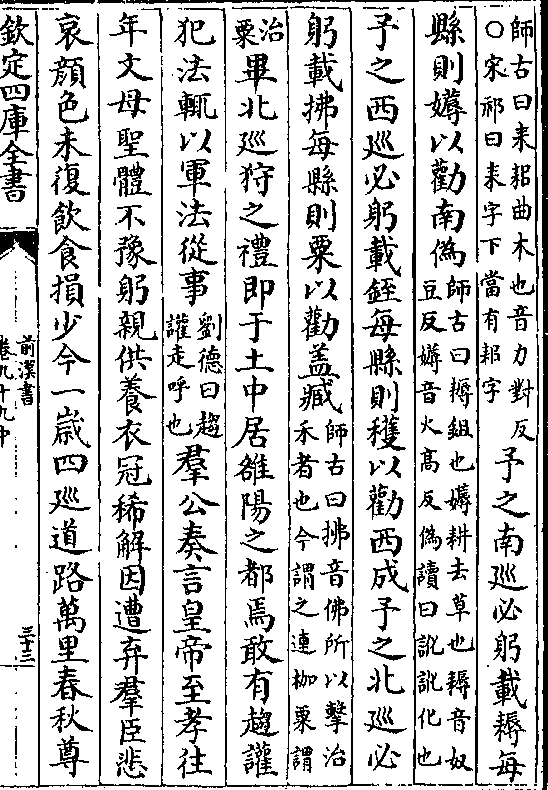 師古曰耒耜曲木也音力對反
○宋祁曰耒字下當有耜字
予之南巡必躬載耨每
縣則薅以勸南偽
師古曰耨鉏也薅耕去草也耨音奴
豆反薅音火高反偽讀曰訛訛化也
予之西巡必躬載銍每縣則穫以勸西成予之北巡必
躬載拂每縣則粟以勸盖臧
師古曰拂音佛所以擊治
禾者也今謂之連枷粟謂
治
粟
畢北巡狩之禮即于土中居雒陽之都焉敢有趨讙
犯法輒以軍法從事
劉德曰趨
讙走呼也
羣公奏言皇帝至孝往
年文母聖體不豫躬親供養衣冠稀解因遭弃羣臣悲
哀顔色未復飲食損少今一歲四巡道路萬里春秋尊
欽定四庫全書
前漢書
卷九十九中
三十三